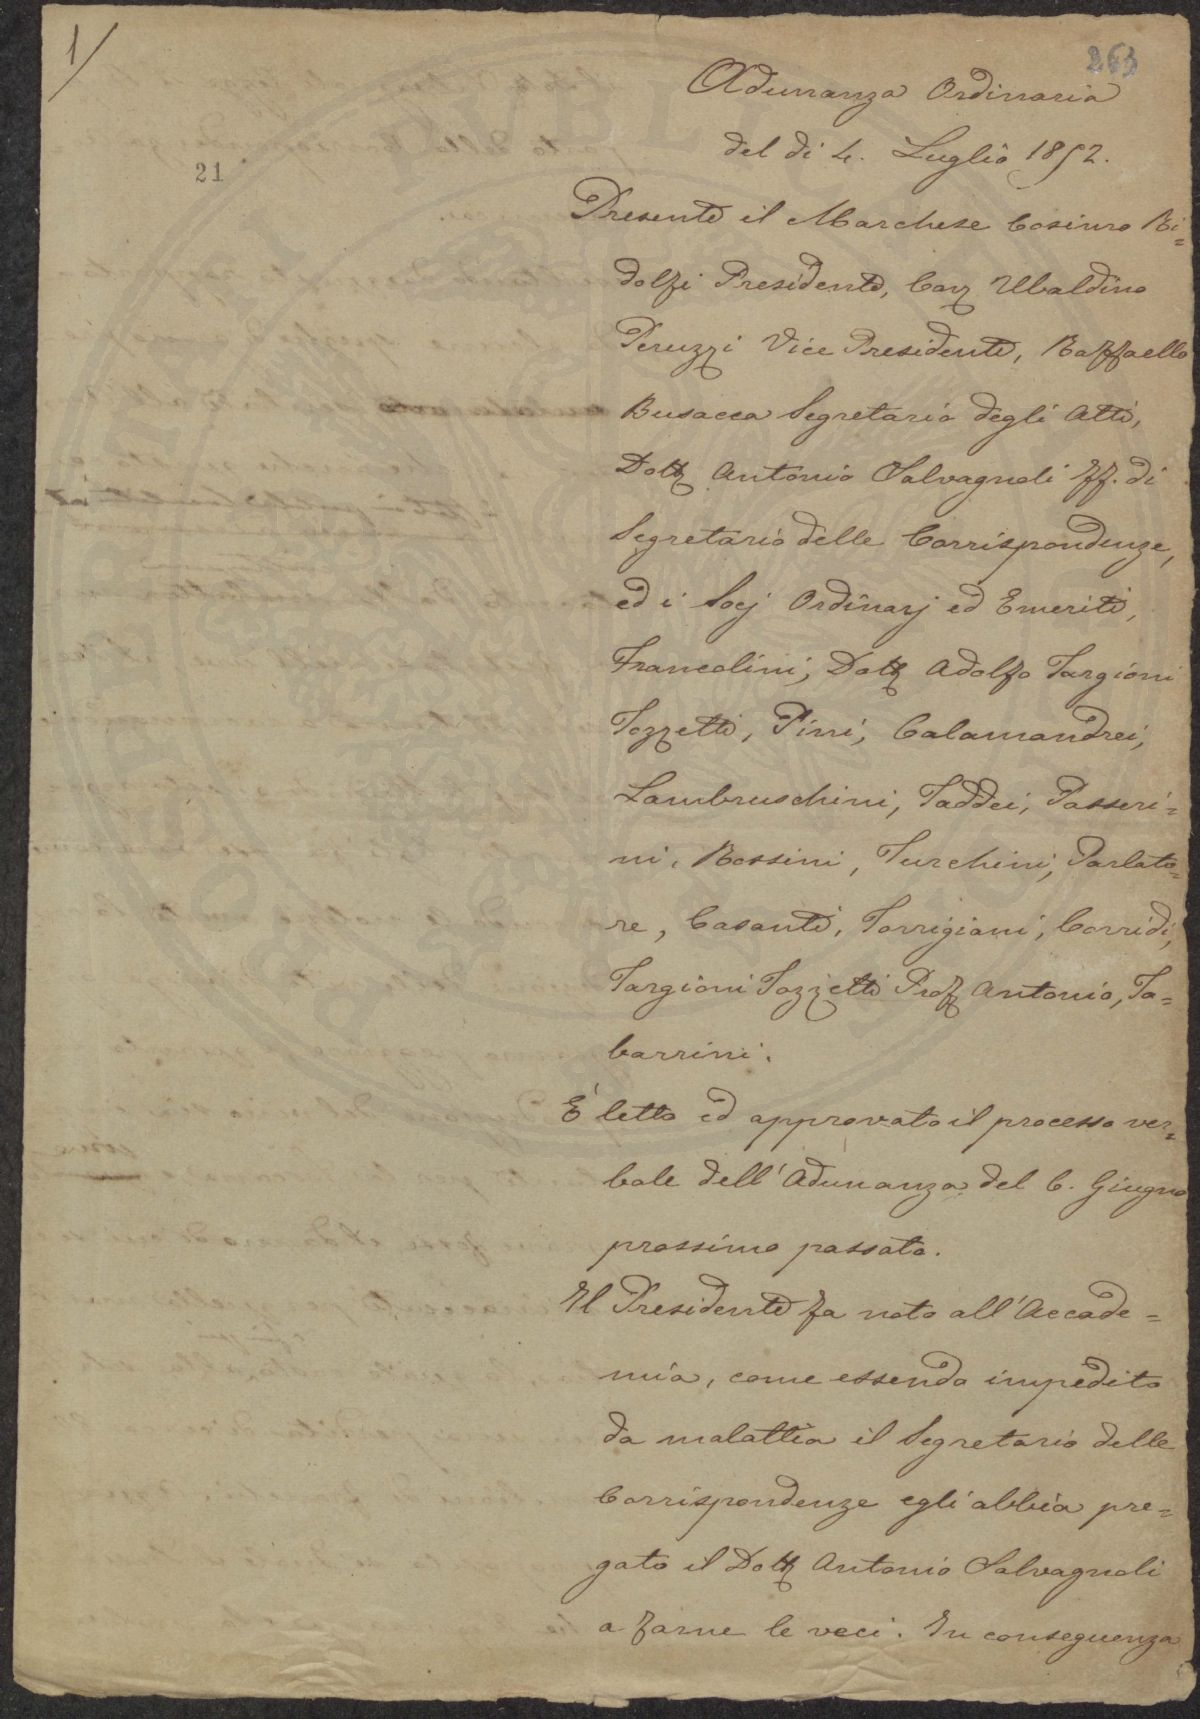 1/
263
Adunanza Ordinaria
del dì 4. Luglio 1852.
21
Presenti il Marchese Cosimo Ri=
dolfi Presidente, Cav Ubaldino
Peruzzi Vice Presidente, Raffaello
Busacca Segretario degli Atti,
Dott Antonio Salvagnoli ff. di
Segretario delle Corrispondenze,
ed i Socj Ordinarj ed Emeriti,
Francolini, Dott Adolfo Targioni
Tozzetti, Pini, Calamandrei,
Lambruschini, Taddei, Passeri=
ni, Rossini, Turchini, Parlato=
re, Casanti, Torrigiani, Corridi,
Targioni Tozzetti Prof Antonio, Ta=
barrini.
É letto ed approvato il processo ver=
bale dell'Adunanza del 6. Giugno
prossimo passato.
Il Presidente fa noto all'Accade=
mia, come essendo impedito
da malattia il Segretario delle
Corrispondenze egli abbia pre=
gato il Dott Antonio Salvagnoli
a farne le veci. In conseguenza